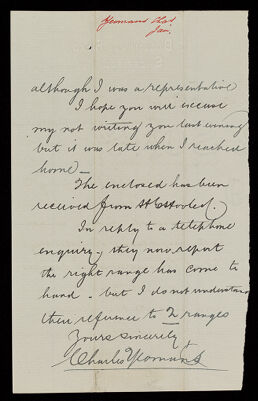 Yeomans Chas
Jan.
although I was a representative
I hope you will excuse
my not writing you last evening
but it was late when I reached
home –
The enclosed has been
received from
In reply to a telephone
enquiry, they now report
the right range has come to
hand – but I do not understand
their reference to 2 ranges
Yours sincerely
Charles Yeomans